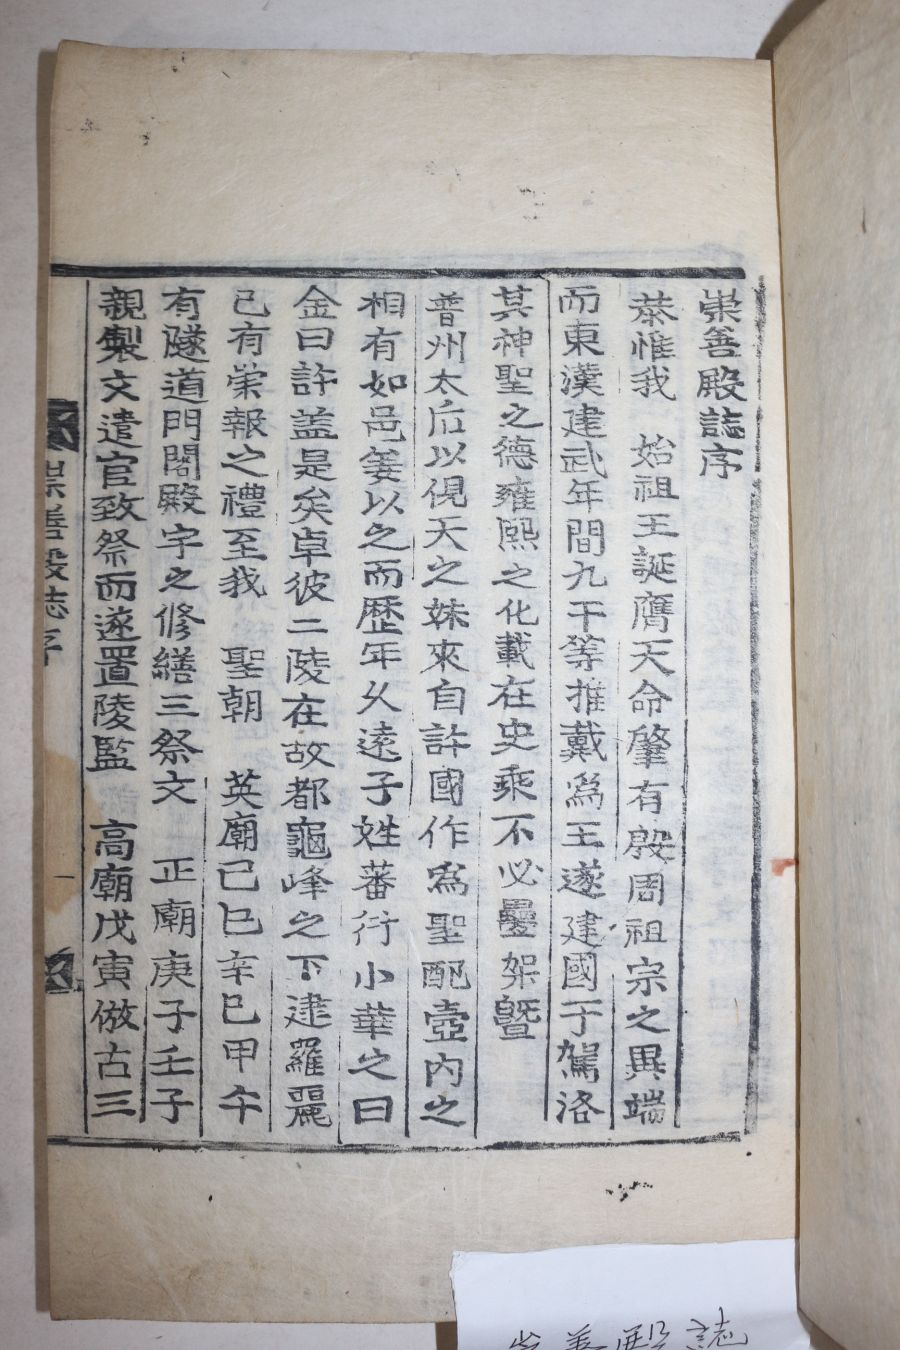 崇善殿誌序
恭惟我 始祖王誕膺天命肇有殷周祖宗之異端
而東漢建武年間九干等推戴爲王遂建國于駕洛
其神聖之德雍熙之化載在史乘不必疊架曁
普州太后以俔天之妹來自許國作爲聖配壼內之
相有如邑姜以之而歷年久遠子姓蕃衍小華之曰
金曰許盖是矣卓彼二陵在故都龜峰之下逮羅麗
已有崇報之禮至我 聖朝 英廟己巳辛巳甲午
有隧道門閣殿宇之修繕三祭文 正廟庚子壬子
親製文遣官致祭而遂置陵監 高廟戊寅倣古三
崇善殿誌序
一
崇善殿誌